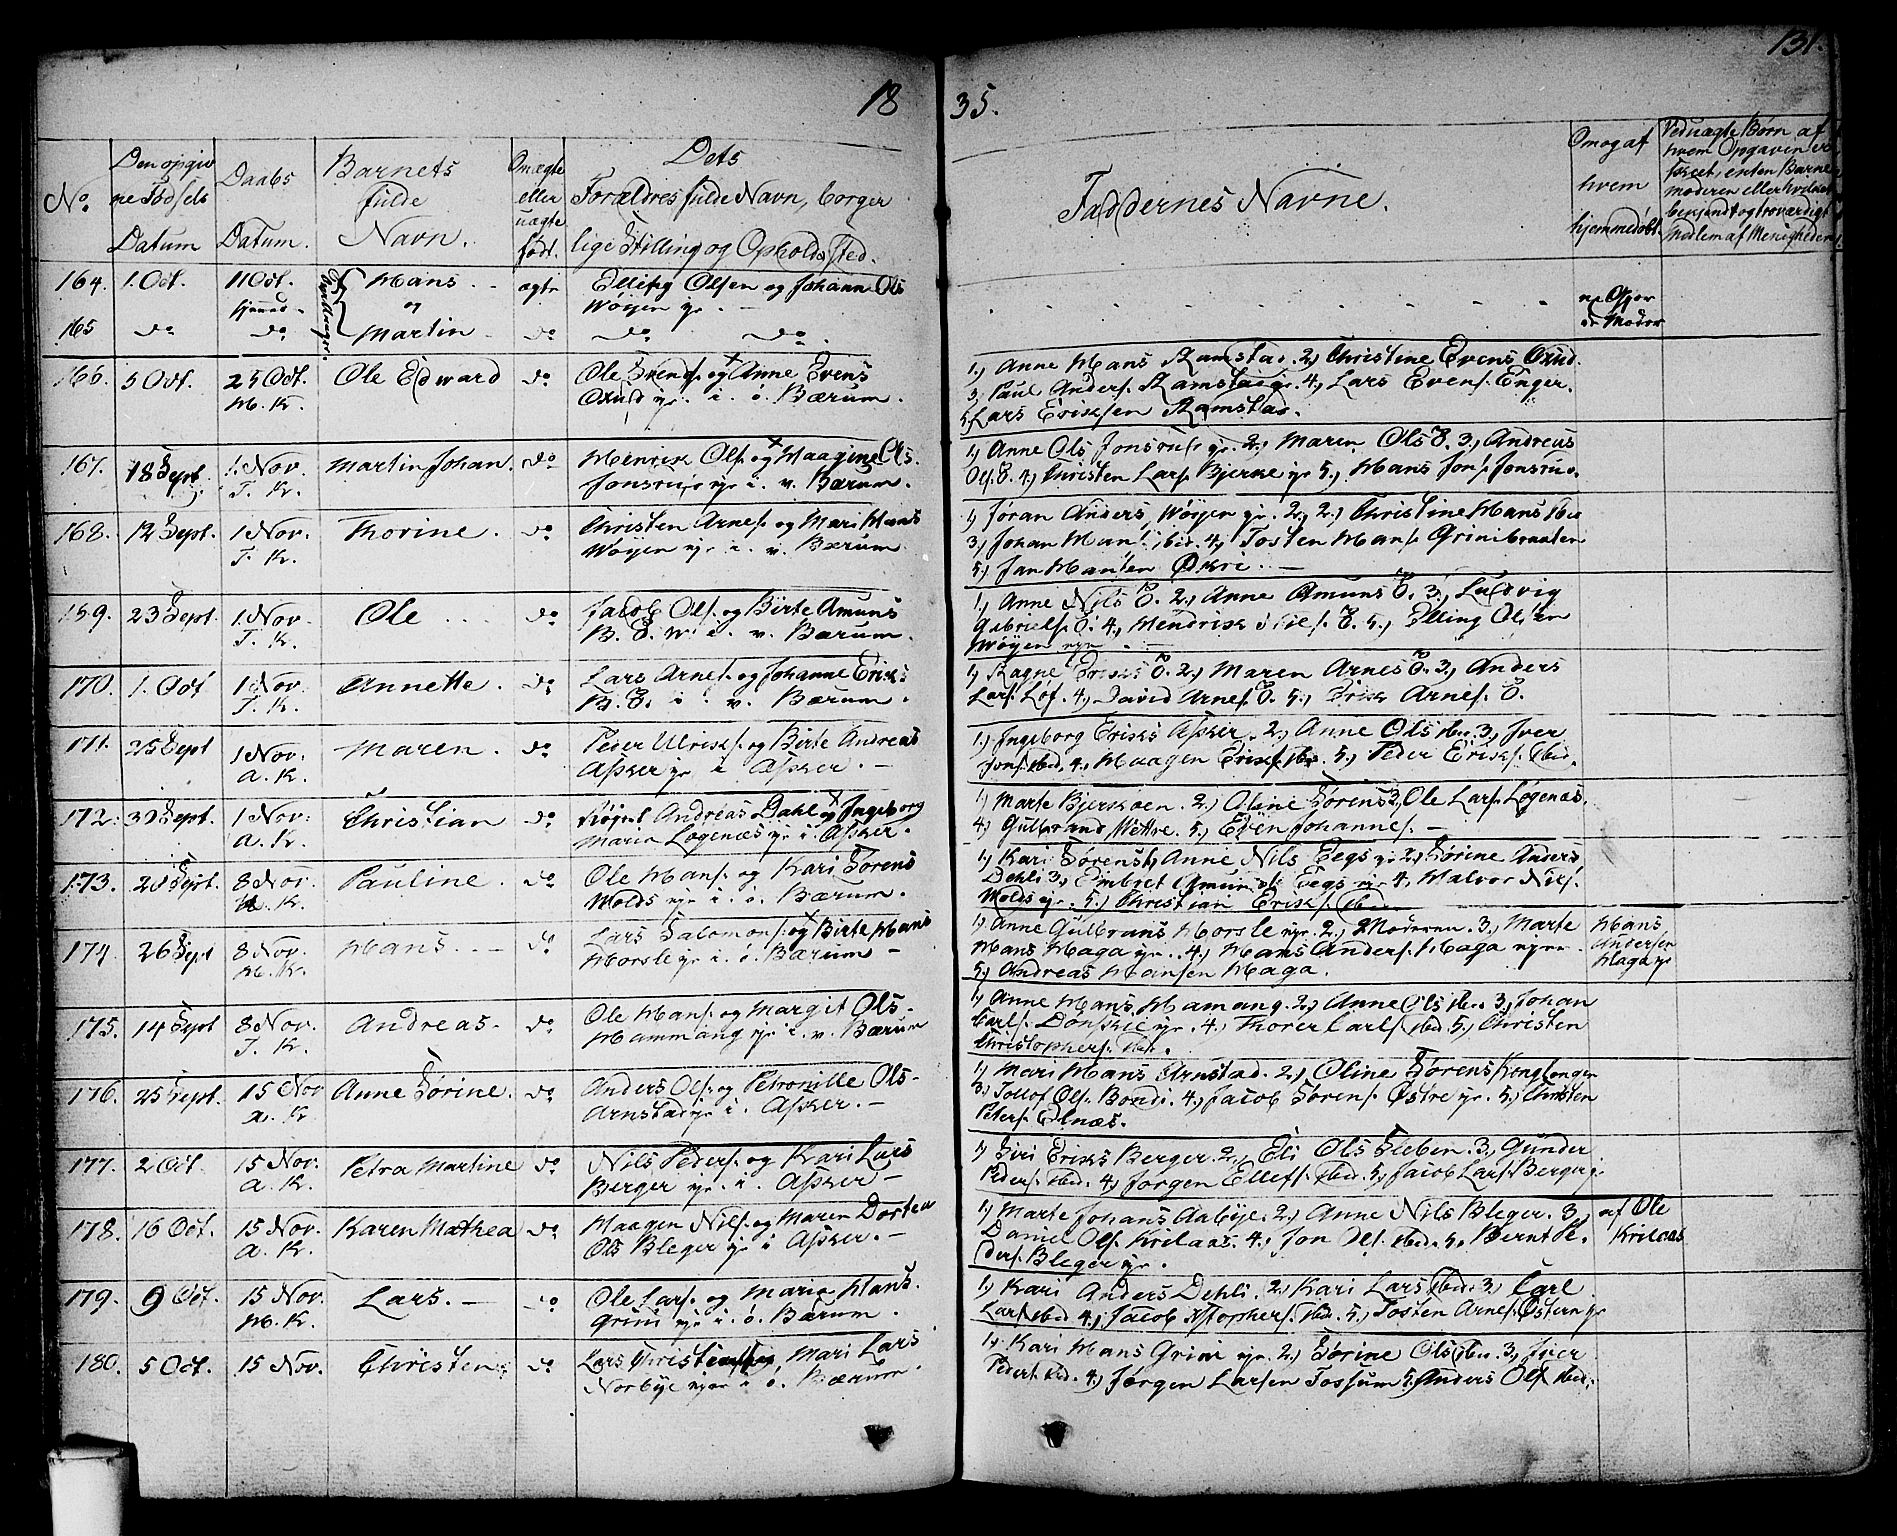 131.
18
35.
No.
Den opgiv
ne Fødsels
Datum
Daabs
Datum.
Barnets
fulde
Navn.
Omægte
eller
uægte
født.
Dets
Forældres fulde Navn, borger
lige Stilling og Opholdssted.
Faddernes Navne.
Om og af
hvem
hjemmedøbt.
Ved uægte Børn af
hvem Opgaven er
skeet, enten Barne
moderen eller hvilket
bekjendt og troværdigt
Medlem af Menigheden
164. 1. Oct. 11 Oct. Hans - ægte Olsen og Johanne Ols
og Wøyen
165 do do Martin - do do do
Tvillinger
Moder
166. 5 Oct. 25 Oct. Ole Edward do Ole Svends. og Anne Evens
H. K. Oxud gr. i. ø. Bærum.
1, Anne Hans Ramstad. 2, Christine Evens Oxud.
3, Paul Anders. Ramstad gr. 4, Lars Evens. Enger.
5, Lars Eriksen Ramstad.
167. 18 Sept. 1. Nov. Martin Johan. do Henrik Ols. og Haagine Ols.
T. K. Jonsrud gr. i. v. Bærum.
1, Anne Ols Jonsrud gr. 2, Maren Ols E. 3, Andreas
Ols. E. 4, Christen Lars. Bjerke gr 5, Hans Jons. Jonsrud.
168. 12 Sept. 1 Nov. Thorine. do Christen Arnes. og Mari Hans
T. K. Wøyen gr i. v. Bærum.
1, Joran Anders, Wøyen gr. 2, 2, Christine Hans ibid
3, Johan Hans. ibid. 4, Tosten Hans. Grinibraaten
5, Jan Hansen Økri. -
169. 23 Sept. 1. Nov. Ole ... do Jacob Ols. og Birte Amuns
T. K. B. E. W. i. v. Bærum.
1, Anne Nils E. 2, Anne Amuns E. 3, Ludvig
Gabriels. E. 4, Hendrik Nils. E. 5, Elling Olsen
Wøyen
170. 1. Oct 1 Nov. Annette. do Lars Arnes. og Johanne Eriks
T. K. B. E. i. v. Bærum.
1, Ragne Eriks E. 2, Maren Arnes E. 3, Anders
Lars. Løf. 4, David Arnes. E. 5, Erik Arnes. E.
171. 25 Sept 1 Nov. Maren. do Peder Ulriks. og Birte Andreas
A. K. Asker gr i. Asker. -
1, Ingeborg Eriks Asker. 2, Anne Ols ibid 3, Iver
Jons. ibid. 4, Haagen Eriks. ibid 5, Peder Eriks. ibid.
172. 30 Sept. 1 Nov. Christian do Andreas Dahl og Ingeborg
A. K. Maria Løgenæs gr i. Asker.
1, Marte Bjerkøen. 2, Oline Sørens 3, Ole Lars. Løgenæs.
4, Gulbrand Wettre. 5, Even Johannes. -
173. 20 Sept. 8 Nov. Pauline. do Ole Hans. og Kari Sørens
K. Molds gr i. ø. Bærum.
1, Kari Sørens, Anne Nils Eegs gr 2, Sørine Anders
Dehli 3, Embret Amunds. Eegs gr 4, Halvor Nils.
Molds gr. 5, Christian Eriks. ibid.
174. 26 Sept 8 Nov. Hans. - do Lars Salomons. og Birte Hans
H. K. Horsle gr. i. ø. Bærum -
1, Anne Gulbrans Horsle gr. 2, Moderen. 3, Marte
Hans Haga gr. 4, Hans Anders. Haga
5, Andreas Hansen Haga.
Hans
Andersen
Haga gr
175. 14 Sept 8 Nov. Andreas. do Ole Hans. og Margit Ols-
T. K. Hammang gr i. v. Bærum
1, Anne Hans, Hamang. 2, Anne Ols ibid 3, Johan
Carls. Dønskie gr. 4, Thorer Carls. ibid 5, Christen
Christophers. ibid.
176. 25 Sept. 15 Nov Anne Sørine. do Anders Ols. og Petronille Ols-
A. K. Arnstad gr i. Asker. -
1, Mari Hans Arnstad. 2, Oline Sørens Konglungen
3, Tollof Ols. Bondi. 4, Jacob Sørens. Østre gr. 5, Christen
Peters. Elnæs.
177. 2 Oct. 15 Nov. Petra Martine do Nils Peders. og Kari Lars
A. K. Berger gr. i. Asker -
1, Siri Eriks Berger. 2, Eli Ols Sleben. 3, Gunder
Peders. ibid. 4, Jørgen Ellefs. ibid. 5, Jacob Lars. Berger g.
178. 16 Oct. 15 Nov. Karen Mathea do Haagen Nils. og Maren Dortea
A. K. Ols Bleger gr i Asker. -
1, Marte Johans Aabye. 2, Anne Nils Bleger. 3,
Daniel Ols. Krilaas. 4, Jon Ols. ibid. 5, Bernt Pe-
ders. Bleger gr.
af Ole
Krilaas
179. 9 Oct. 15 Nov. Lars. - do Ole Lars. og Maria Hans.
H. K. Grini gr i. ø. Bærum.
1, Kari Anders Dehli. 2, Kari Lars ibid. 3, Carl
Lars. ibid 4, Jacob Xstophers. ibid. 5, Tosten Arnes. Østern gr
180. 5 Oct. 15 Nov. Christen. do Lars Christens. og Mari Lars
Norbye i ø. Bærum
1, Kari Hans Grini gr. 2, Sørine Ols ibid. 3, Iver
Peders. ibid. 4, Jørgen Larsen Tossum 5, Anders Ols. ibid.